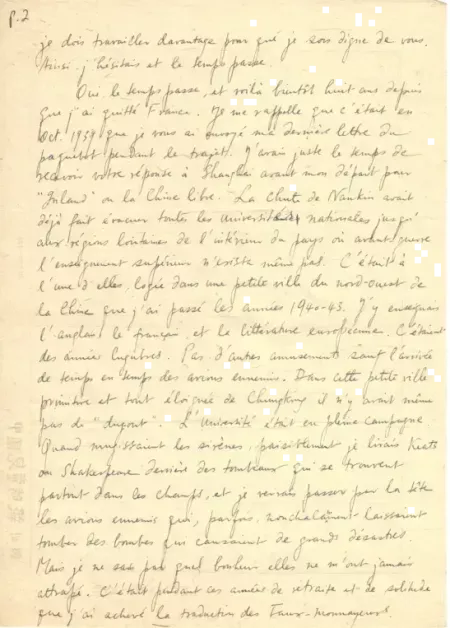 p.2
je dois travailler davantage pour que je sois digne de vous.
Ainsi j'hésitais et le temps passe.
Oui le temps passe, et voilà bientôt huit ans depuis
que j'ai quitté France. Je me rappelle que c'était en
Oct. 1939 que je vous ai envoyé ma dernière lettre du
paquebot pendant le trajet. J'avais juste le temps de
recevoir votre réponse à Shanghai avant mon départ pour
"Inland" ou la Chine libre. La chute de Nankin avait
déjà fait évacuer toutes les universités nationales jusqu'
aux régions lointaines de l'intérieur du pays où avant-guerre
l'enseignement supérieur n'existe même pas. C'était à
l'une d'elles, logée dans une petite ville du nord-ouest de
la Chine que j'ai passé les années 1940-43. J'y enseignais
l'anglais, le français, et la littérature européenne. C'étaient
des années lugubres. Pas d'autres amusements sauf l'arrivée
de temps en temps des avions ennemis. Dans cette petite ville
primitive et tout éloignée de Chungking il n'y avait même
pas de "dugout". L'Université était en pleine campagne.
Quand mugissaient les sirènes, paisiblement je lisais Keats
ou Shakespeare derrière des tombeaux qui se trouvent
partout dans les champs, et je verrais passer par la tête
les avions ennemis qui, parfois, nonchalamment laissaient
tomber des bombes qui causaient de grands désastres.
Mais je ne sais par quel bonheur elles ne m'ont jamais
attrapé. C'était pendant ces années de retraite et de solitude
que j'ai achevé la traduction des Faux-monnayeurs.